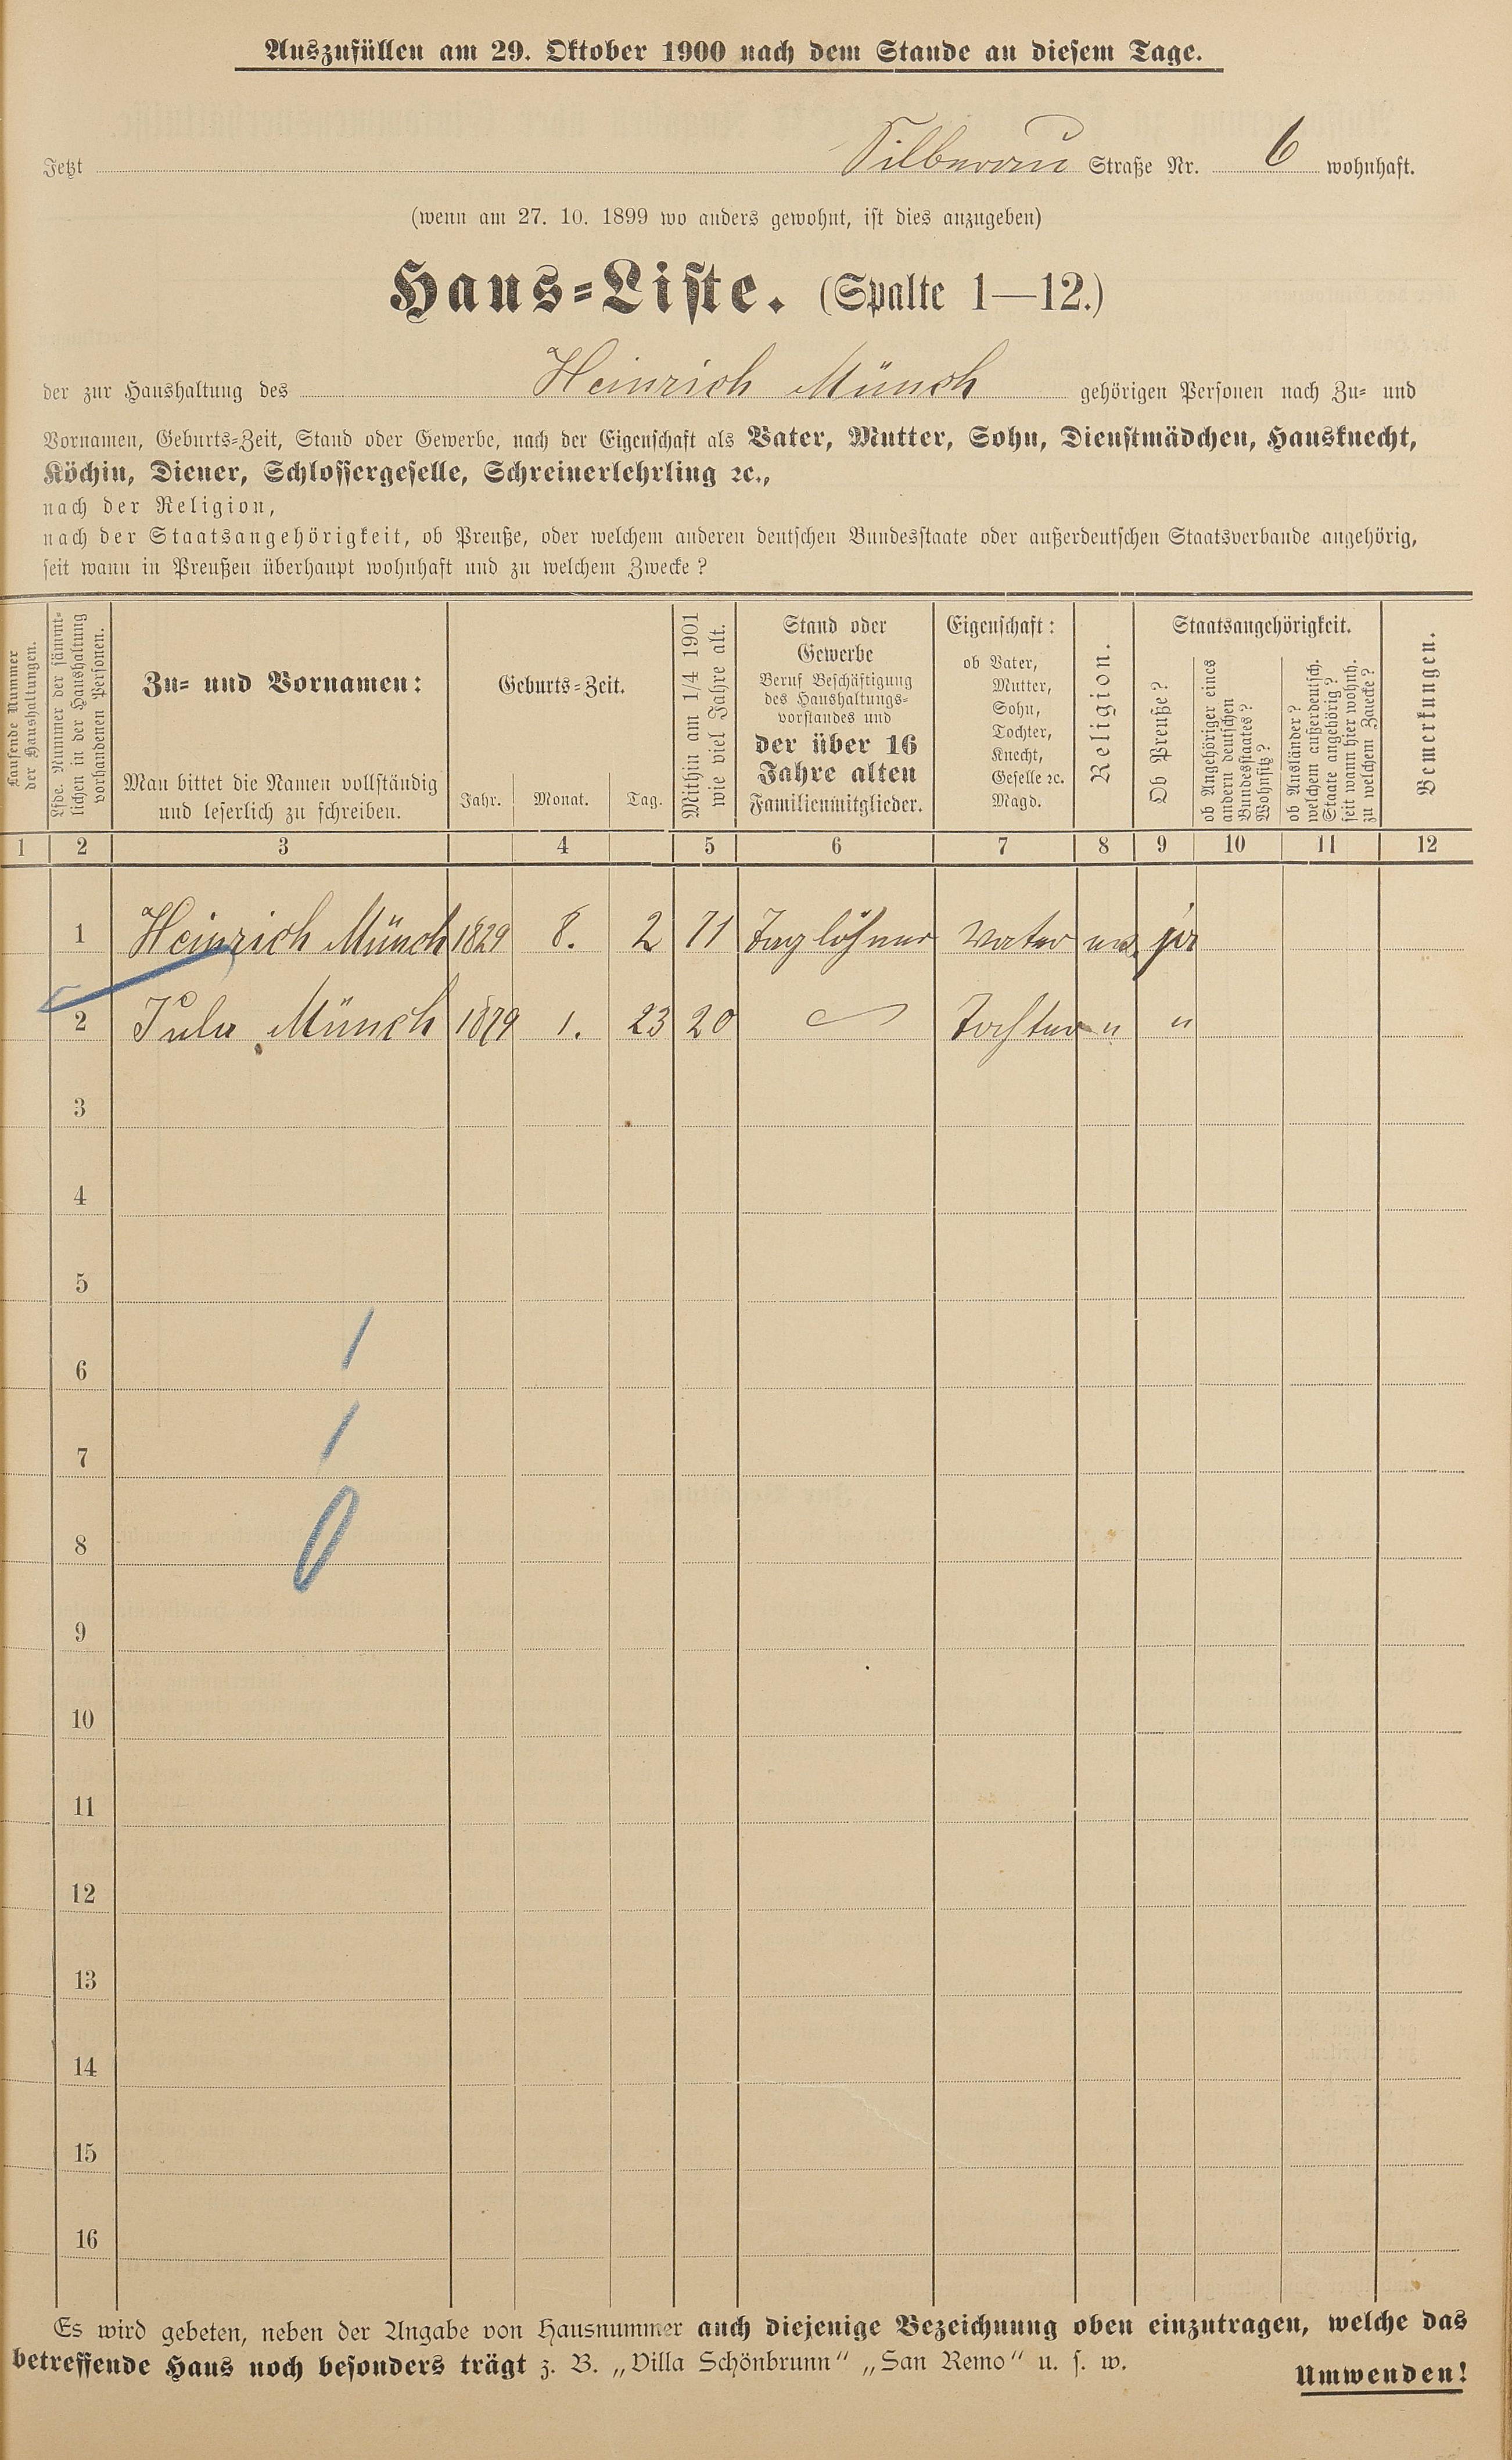 Auszufüllen am 29. Oktober 1900 nach dem Stande an diesem Tage.
Jetzt Silberau Straße Nr. 6 wohnhaft.
(wenn am 27. 10. 1899 wo anders gewohnt, ist dies anzugeben)
Haus-Liste. (Spalte 1—12.)
der zur Haushaltung des Heinrich Münch gehörigen Personen nach Zu- und
Vornamen, Geburts-Zeit, Stand oder Gewerbe, nach der Eigenschaft als Vater, Mutter, Sohn, Dienstmädchen, Hausknecht,
Köchin, Diener, Schlossergeselle, Schreinerlehrling ꝛc.,
nach der Religion,
nach der Staatsangehörigkeit, ob Preuße, oder welchem anderen deutschen Bundesstaate oder außerdeutschen Staatsverbande angehörig,
seit wann in Preußen überhaupt wohnhaft und zu welchem Zwecke?
Laufende Nummer
der Haushaltungen.
Lfde. Nummer der sämmt-
lichen in der Haushaltung
vorhandenen Personen.
Zu- und Vornamen:
Man bittet die Namen vollständig
und leserlich zu schreiben.
Geburts-Zeit.
Jahr. Monat. Tag.
Mithin am 1/4 1901
wie viel Jahre alt.
Stand oder
Gewerbe
Beruf Beschäftigung
des Haushaltungs-
vorstandes und
der über 16
Jahre alten
Familienmitglieder.
Eigenschaft:
ob Vater,
Mutter,
Sohn,
Tochter,
Knecht,
Geselle ꝛc.
Magd.
Religion.
Staatsangehörigkeit.
Ob Preuße?
ob Angehöriger eines
andern deutschen
Bundesstaates?
Wohnsitz?
ob Ausländer?
welchem außerdeutsch.
Staate angehörig?
seit wann hier wohnh.
zu welchem Zwecke?
Bemerkungen.
1 2 3 4 5 6 7 8 9 10 11 12
1 Heinrich Münch 1829 8. 2 71 Taglöhner Vater ja
2 Münch 1879 1. 23 20 Tochter " "
3
4
5
6
7
8
9
10
11
12
13
14
15
16
Es wird gebeten, neben der Angabe von Hausnummer auch diejenige Bezeichnung oben einzutragen, welche das
betreffende Haus noch besonders trägt z. B. „Villa Schönbrunn“ „San Remo“ u. s. w.
Umwenden!